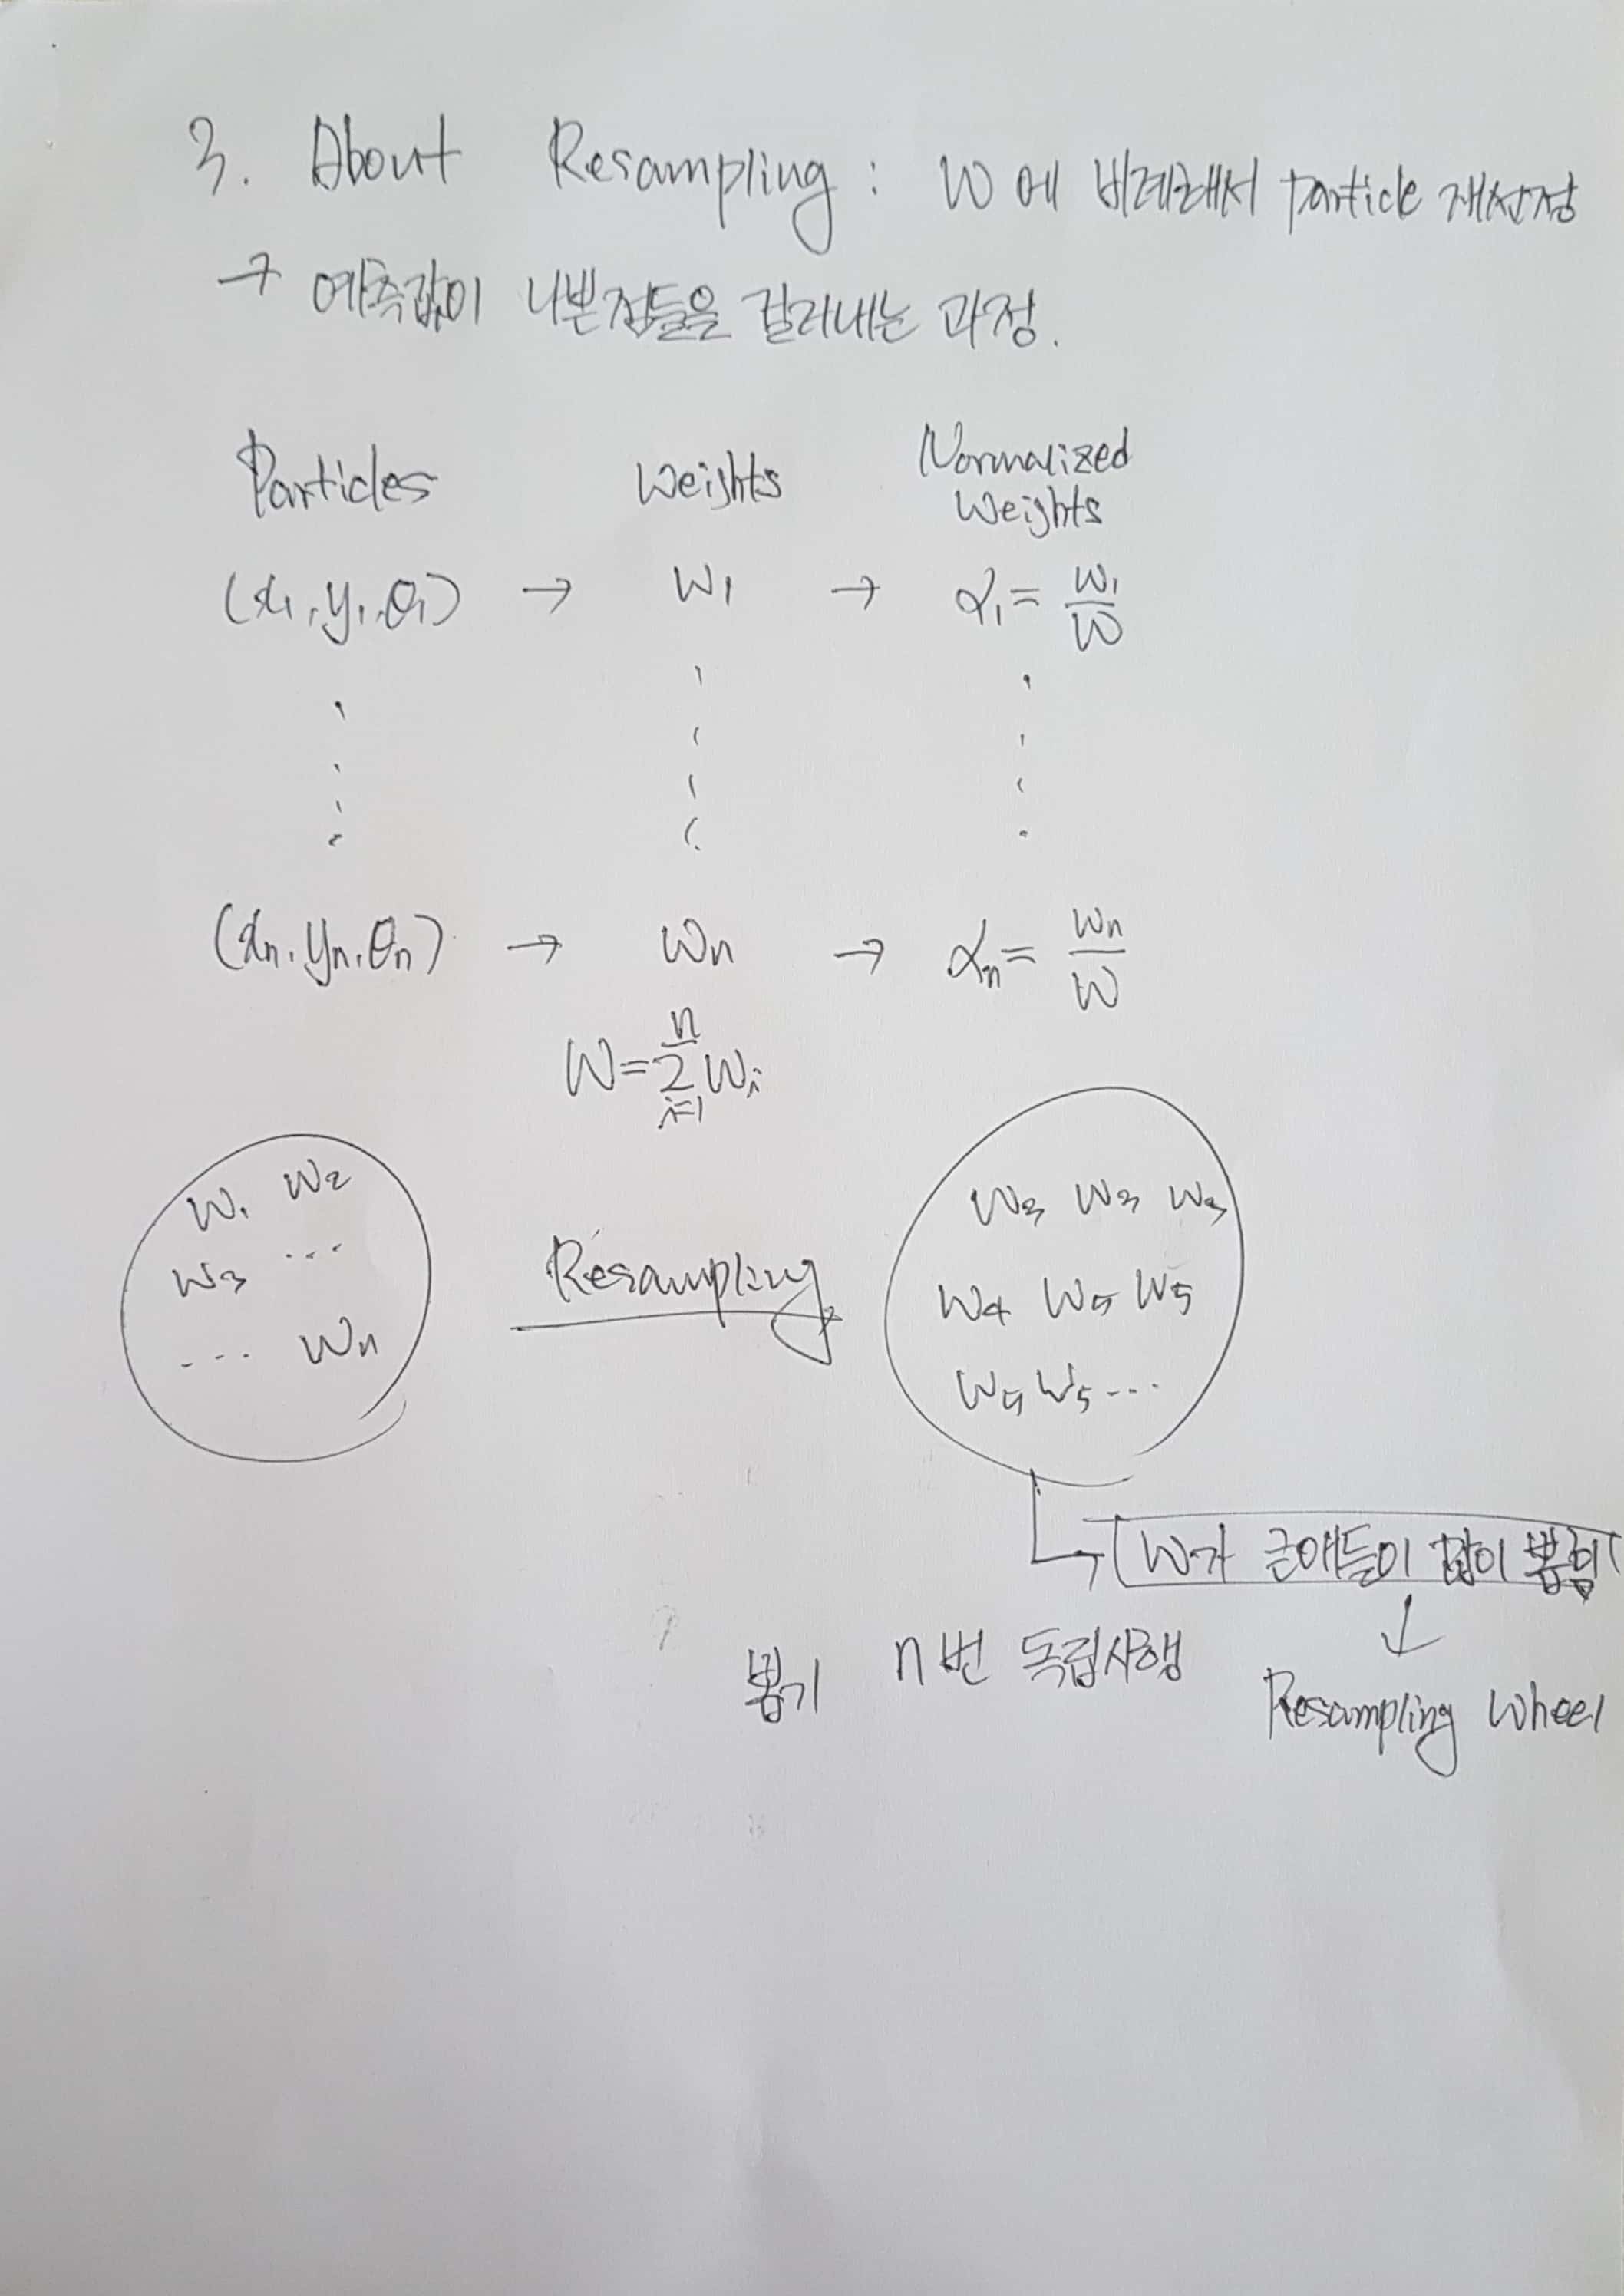 3. About Resampling : W에 비례해서 particle 재선정
→ 예측값이 나쁜점들을 걸러내는 과정.
Particles Weights Normalized Weights
(x₁, y₁, θ₁) → w₁ → α₁ = w₁/W
(xₙ, yₙ, θₙ) → wₙ → αₙ = wₙ/W
W = Σⁿᵢ₌₁ wᵢ
w₁ w₂
w₃ ...
... wₙ
Resampling
w₃ w₃ w₃
w₄ w₅ w₅
w₅ w₅ ...
W가 큰애들이 많이 뽑힘
뽑기 n번 독립시행
Resampling Wheel